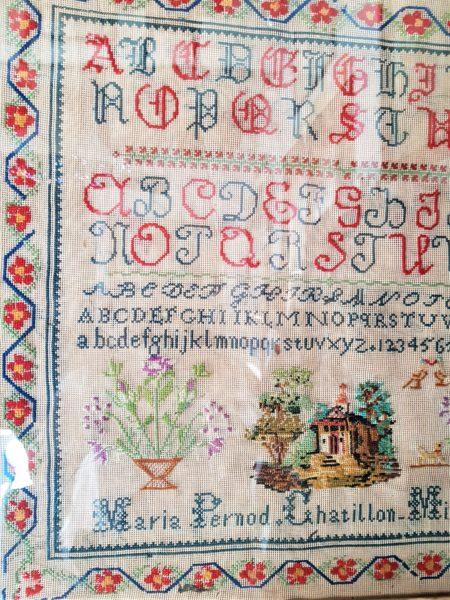 A B C D E F G H I
N O P Q R S T U
A B C D E F G H I
N O P Q R S T U
A B C D E F G H I K L M N O P
A B C D E F G H I J K L M N O P Q R S T U V
a b c d e f g h i j k l m n o p q r s t u v x y z . 1 2 3 4 5 6
Maria Pernod . Chatillon - Mi